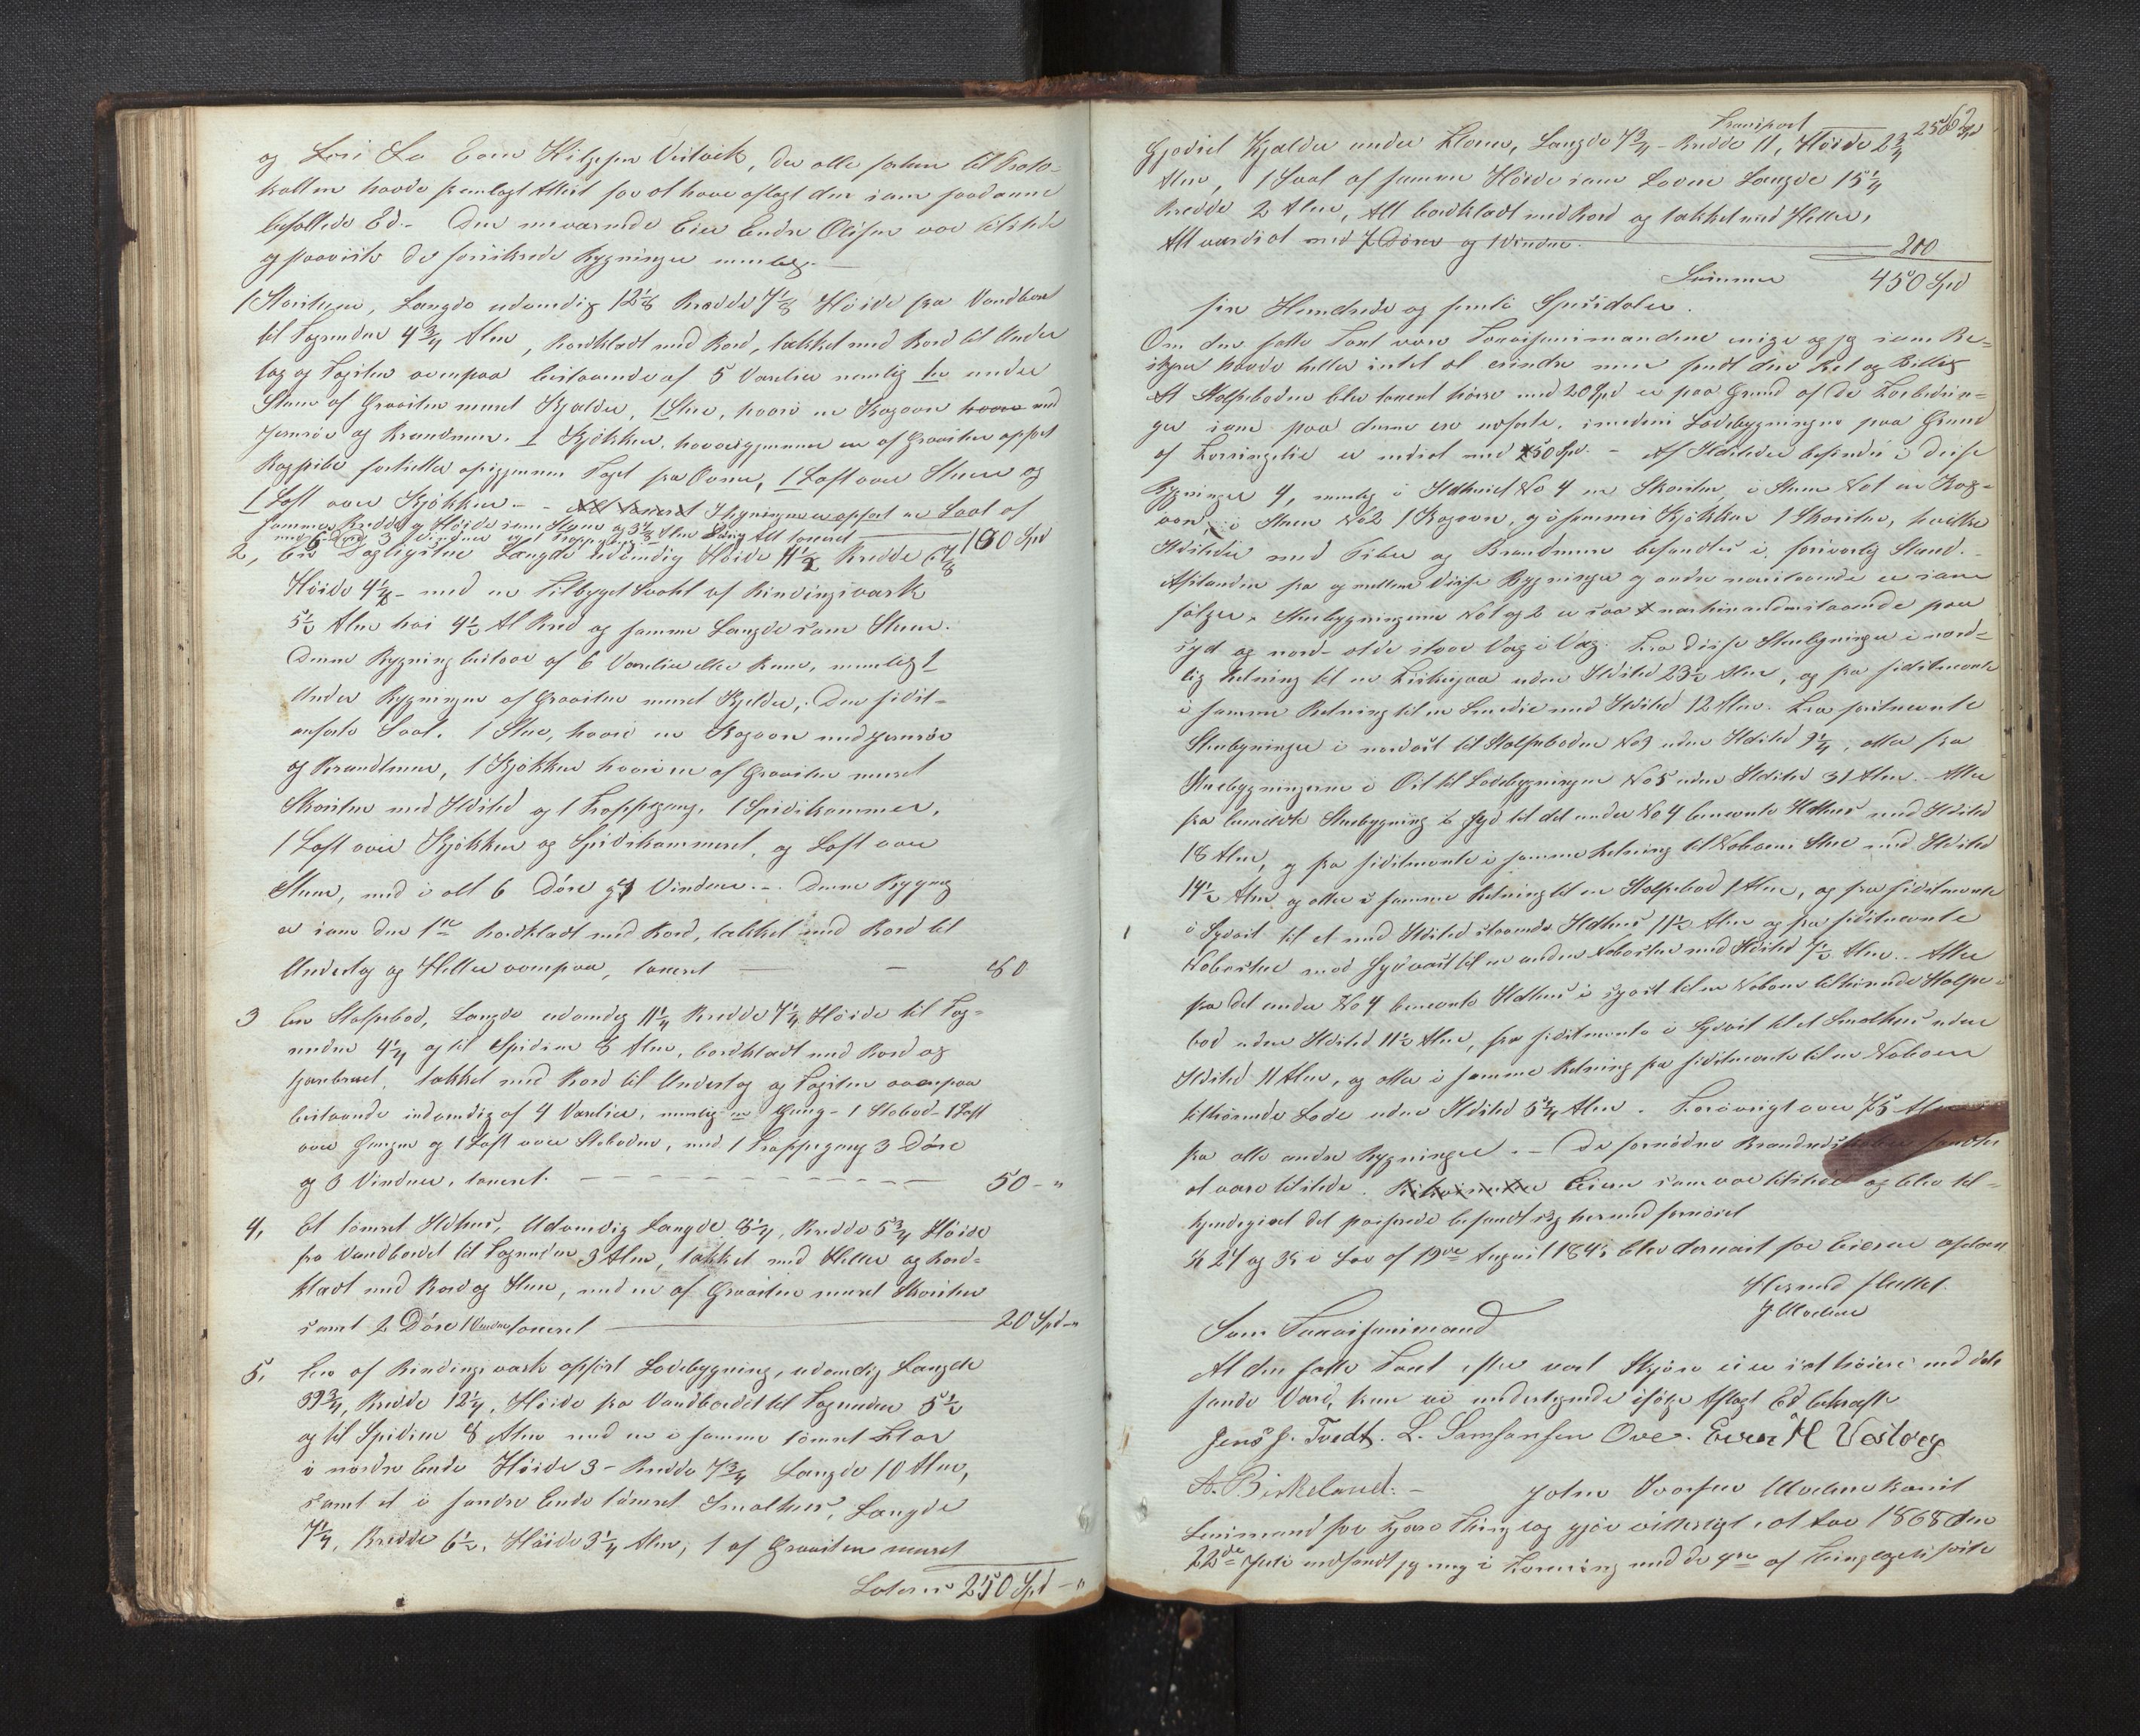 og Lars La Even Helgesen Vestvik, der alle forhen til Proto-
kollen havde fremlagt Attest for at have aflagt den som saadanne
befallede Ed.- Den nuværende Eier Endre Olsen var tilstede
og paaviste de forsikrede Bygninger nemlig.
1 Storstue, Længde udvendig 12 1/8 Bredde 7 1/8 Höide fra Vandbord
til Tagrenden 4 3/4 Alen, bordklædt med Bord, tækket med Bord til Under
lag og Tagsten ovenpaa bestaaende af 5 Værelser nemlig En under
Stuen af Graasten muret Kjælder, 1 Stue, hvori en Kogovn med
Jernrör og Brandmuur. 1 Kjökken, hvorigjennem en af Graasten opfört
Rögpibe fortsætter opigjennem Taget fra Ovnen, 1 Loft over Stuen og
1 Loft over Kjökken. - Bygningen er opfört en Sval af
samme Bredde og Höide som Stuen og 3 1/2 Alen Alt taxeret
med 6 Döre 3 Vinduer og 1 Trappegang 160 Spd
2, En Dagligstue Længde udvendig 11 1/2 Bredde 6 7/8
Höide 4 1/2 - med en Tilbygget Svahl af Bindingsværk
5 1/2 Alen höi 4 1/2 Al Bred og samme Længde som Stuen.
Denne Bygning bestaar af 6 Værelser eller Rum, nemlig 1
Under Bygningen af Graasten muret Kjelder, Den sidst-
anförte Sval. 1 Stue, hvori en Kogovn med Jernrör
og Brandmuur, 1 Kjökken hvori en af Graasten muret
Skorsten med Ildsted og 1 Trappegang, 1 Spisekammer,
1 Loft over Kjökken og Spisekammeret, og Loft over
Stuen, med i alt 6 Döre og 4 Vinduer. - Denne Bygning
er som den 1ste bordklædt med Bord, tækket med Bord til
Underlag og Heller ovenpaa, taxeret — - 80
3 En Stolpebod, Længde udvendig 11 1/4 Bredde 7 1/4 Höide til Tag-
renden 4 1/4 og til Spidsen 8 Alen, bordklædt med Bord og
tækket med Bord til Underlag og Tagsten ovenpaa
bestaaende indvendig af 4 Værelser, nemlig en Gang - 1 Stobod - 1 Loft
over Gangen og 1 Loft over Stoboden, med 1 Trappegang 3 Döre
og 3 Vinduer, taxeret. 50 - "
4, Et tömret Ildhus, Udvendig Længde 8 1/4, Bredde 5 3/4 Höide
fra Vandbordet til Tagrenden 3 Alen, tækket med Heller og bord-
klædt med Bord og Hun, med en af Graasten muret Skorsten
samt 2 Döre 1 Vindue taxeret 20 Spd "
5, En af Bindingsværk opfört Ladebygning, udvendig Længde
39 3/4, Bredde 12 1/4, Höide fra Vandbordet til Tagrenden 5 1/2
og til Spidsen 8 Alen med en i samme tömret Flor
i nordre Ende Höide 3 - Bredde 7 3/4 Længde 10 Alen,
samt et i söndre Ende tömret Smalhus, Længde
7 1/4, Bredde 6 1/2, Höide 3 1/4 Alen, 1 af Graasten muret
Lateris 250 Spd - "
Transport 250 Spd
62
Gjödsel Kjælder under Floren, Længde 7 3/4 - Bredde 11, Höide 2 3/4
Alen, 1 Sval af samme Höide som Laden Længde 15 1/4
Bredde 2 Alen, Alt bordklædt med Bord og tækket med Heller,
Alt værdsat med 7 Döre og 1 Vindue. 200
Summa 450 Spd
fire Hundrede og femti Speciedaler.
Om den satte Taxt vare Taxationsmændene enige og jeg som Be-
styrer havde heller intet at erindre men fandt den Ret og Billig
At Stolpeboden blev taxeret höiere med 20 Spd er paa Grund af De Forbedrin-
ger som paa denne ere udförte, imedens Ladebygningen paa Grund
af Forringelse er nedsat med 50 Spd. - Af Ildsteder befindes i disse
Bygninger 4, nemlig i Ildhuset No 4 en Skorsten, i Stuen No 1 en Kog-
ovn, i Stuen No 2 1 Kogovn, og i sammes Kjökken 1 Skorsten, hvilke
Ildsteder med Piber og Brandmure befandtes i forsvarlig Stand.
Afstanden fra og mellem disse Bygninger og andre nærstaaende er som
fölger. Stuebygningerne No 1 og 2 er saa nær hinanden staaende paa
syd og nord- Side staar Væg i Væg. Fra disse Stuebygninger i nord-
lig Retning til en uden Ildsted 23 1/2 Alen, og fra sidstnævnte
i samme Retning til en Smedie med Ildsted 12 Alen. Fra förstnævnte
Stuebygninger i nordost til Stolpeboden No 3 uden Ildsted 3 1/4, atter fra
Stuebygningerne i Ost til Ladebygningen No 5 uden Ildsted 31 Alen. - Atter
fra bemeldte Stuebygning i Syd til det under No 4 benævnte Ildhus med Ildsted
18 Alen, og fra sidstnævnte i samme Retning til Naboens Stue med Ildsted
14 1/2 Alen og atter i samme Retning til en Stolpebod 1 Alen, og fra sidstnævnte
i Sydost til et med Ildsted staaende Ildhus 11 1/2 Alen og fra sidstnævnte
Nabostue mod Sydvest til en anden Nabostue med Ildsted 7 1/2 Alen. - Atter
fra det under No 4 benævnte Ildhus i sydost til en Naboen tilhörende Stolpe-
bod uden Ildsted 11 1/2 Alen, fra sidstnævnte i Sydost til et Smalhus uden
Ildsted 11 Alen, og atter i samme Retning fra sidstnævnte til en Naboen
tilhörende Lade uden Ildsted 5 3/4 Alen. Forövrigt over 75 Alen
fra alle andre Bygninger. - De fornödne Brandredskaber fandtes
at være tilstede. Eieren som var tilstede og blev til-
kjendegivet det passerede befandt sig hermed fornöiet
§§ 24 og 35 i Lov af 19de August 1845 blev dernæst for Eieren oplæst
Hermed sluttet.
J Moelven
Som Taxationsmænd
At den satte Taxt efter vort Skjön ei er sat höiere end det
sande Værd, kan vi undertegnede ifölge Aflagt Ed bekræfte
Jens J. Tvedt. L. Samsonsen Ove. Even H Vestvig
A. Birkeland. - John Ivarsen Moelven Const
Lensmand for Thinglag gjör vitterligt, at Aar 1868 den
22de Juli indfandt jeg mig i Forening med de 4re af Thinglagets faste